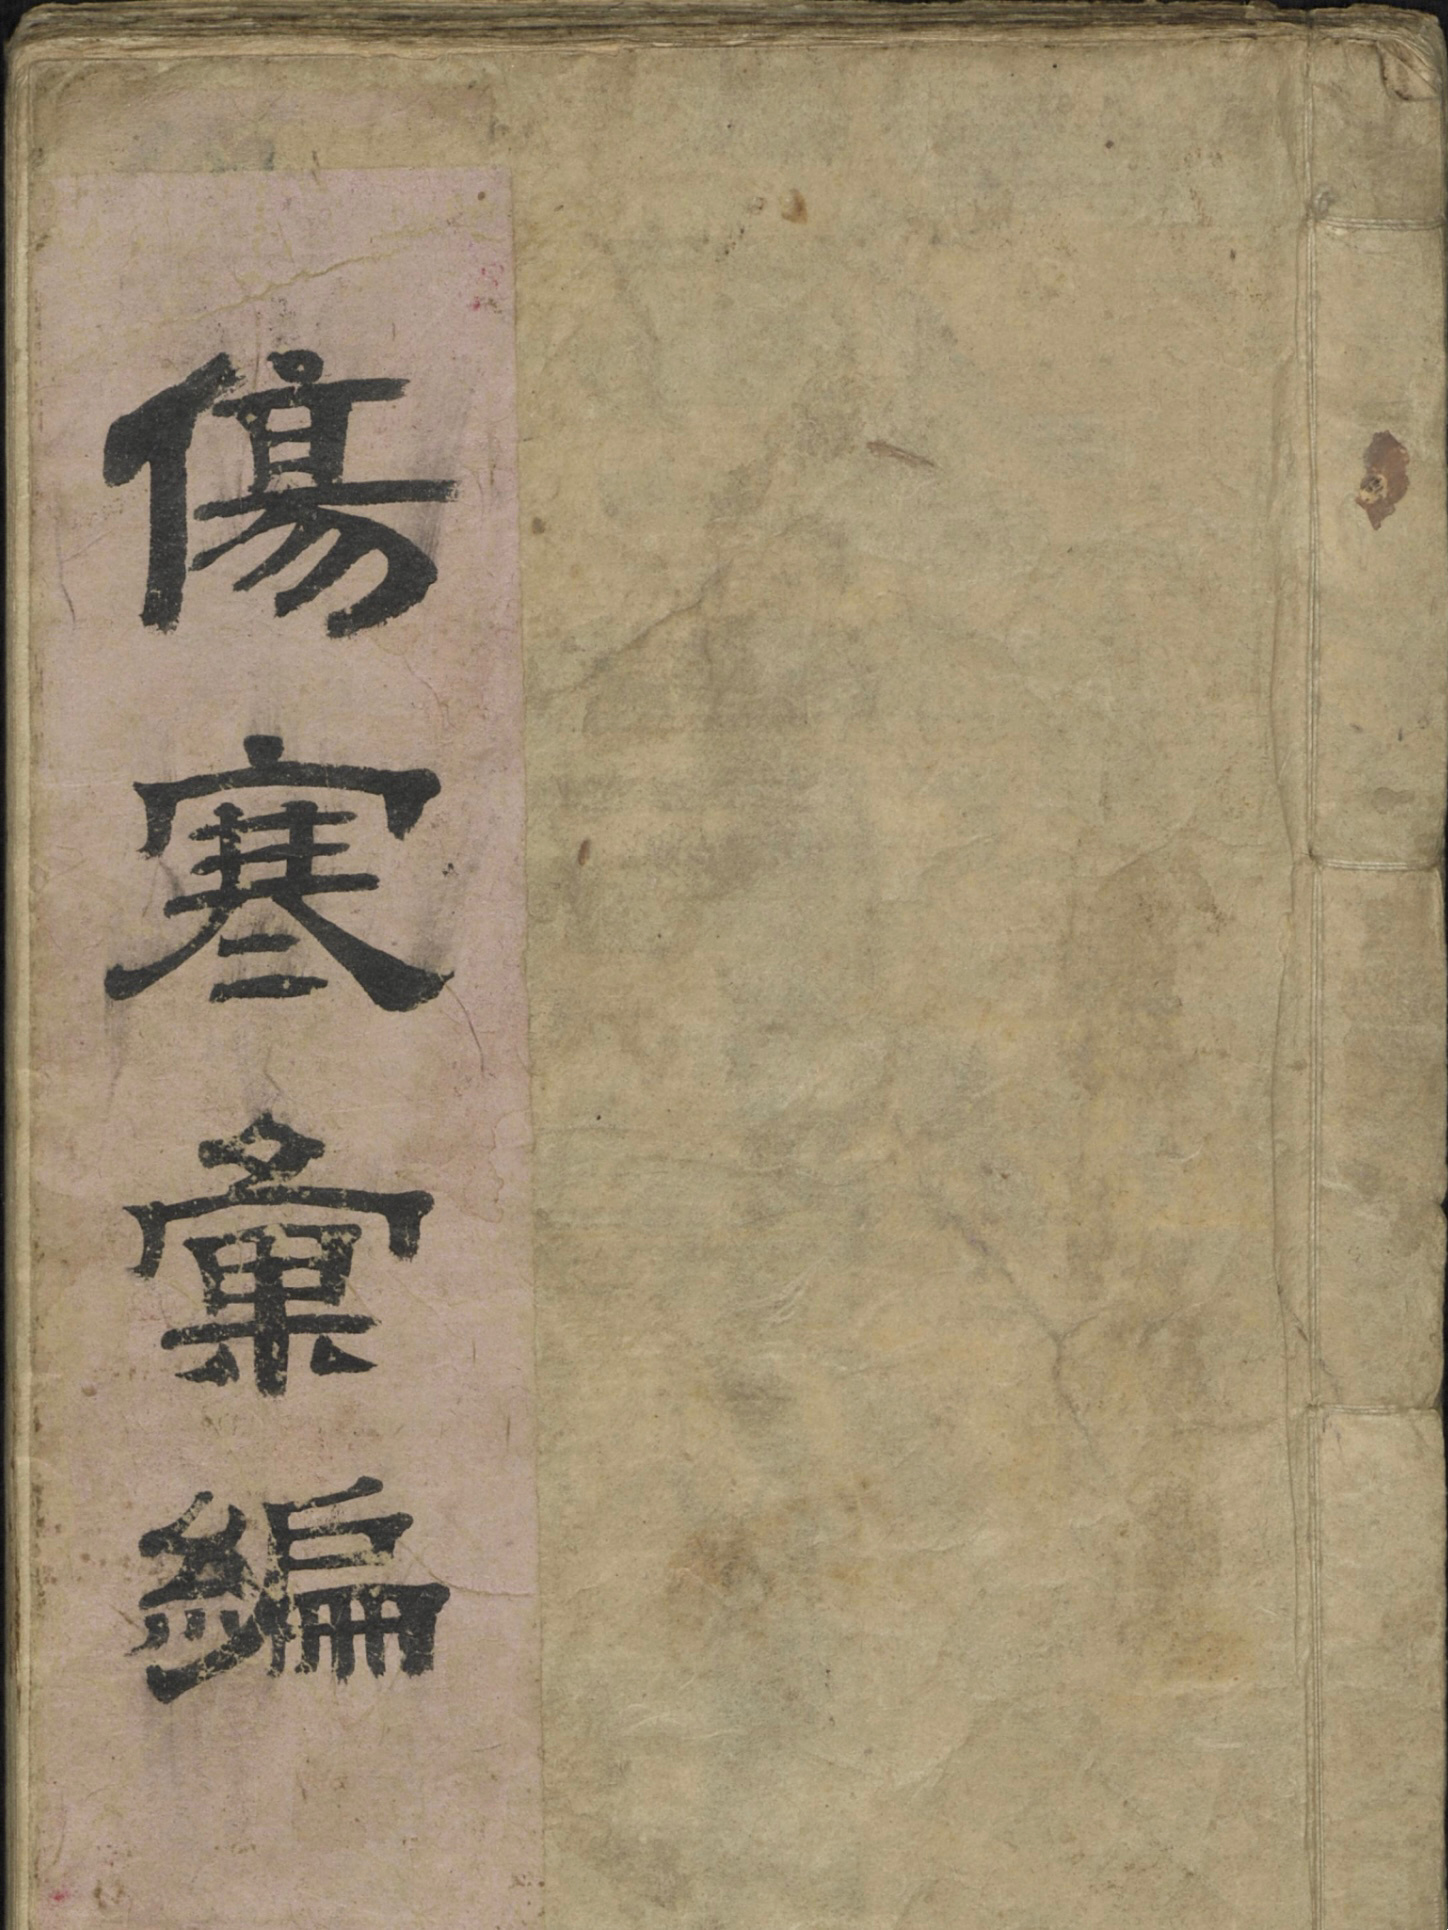 傷寒彙編